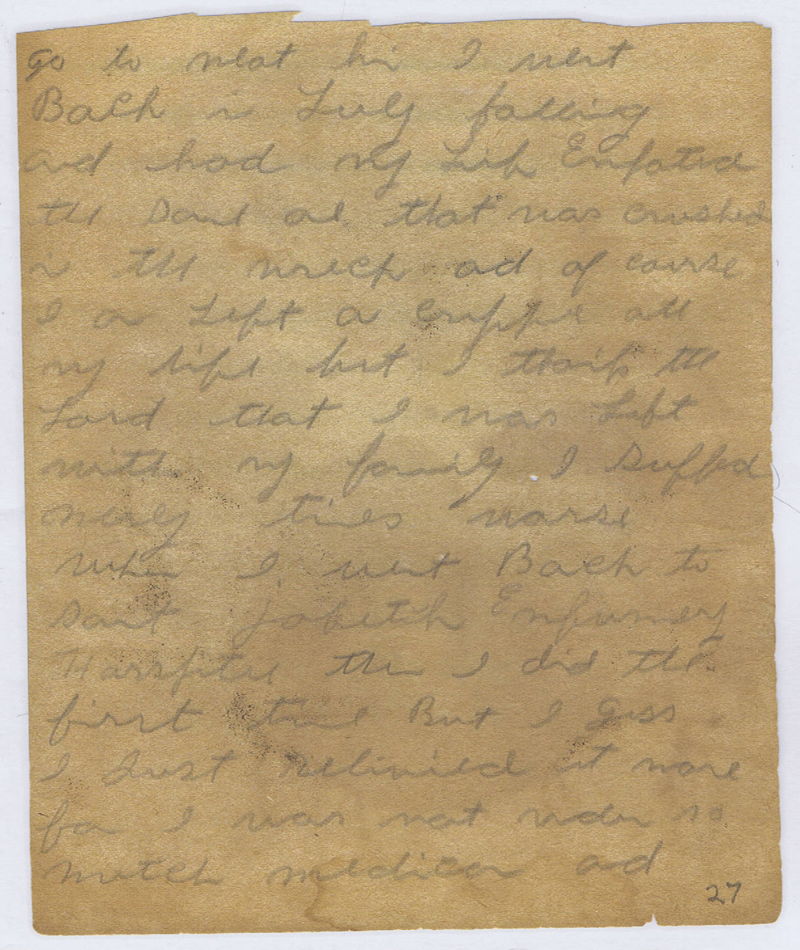 go to neat hin I went
Bach in July falling
and had my Leh Enfated
the Same one that was crushed
in the wreck ad of course
I a Left a cripple all
my life but I thank the
Lord that I was Left
with my family I Suffed
meny times warse
when I went Bach to
Saint Enfurmey
Harspitel then I did the
first time But I Gess
I Just it more
for I was not under so
mutch medican ad
27